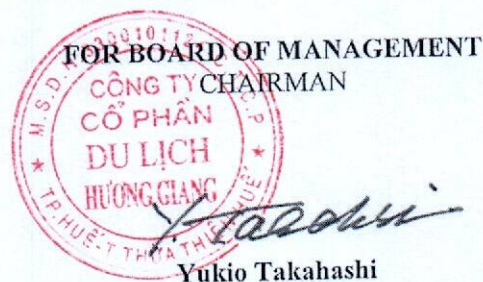 FOR BOARD OF MANAGEMENT
CHAIRMAN
CÔNG TY
CỔ PHẦN
DU LỊCH
HƯƠNG GIANG
TP.HUẾ-T THỪA THIÊN HUẾ
Yukio Takahashi